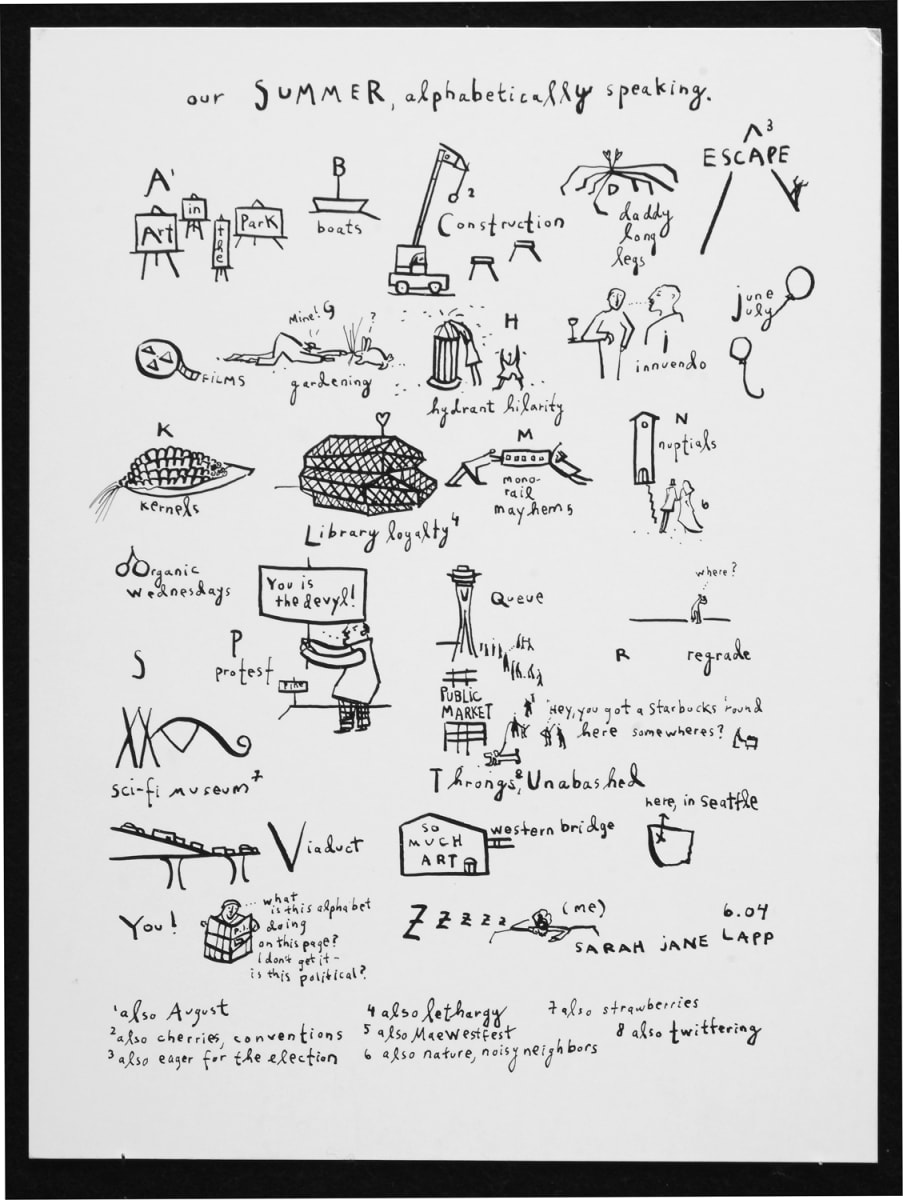 our SUMMER, alphabetically speaking.
A¹
Art
in
the
Park
B
boats
²
Construction
D
daddy
long
legs
³
ESCAPE
FILMS
Mine!
G
?
gardening
H
hydrant hilarity
i
innuendo
june
july
K
kernels
Library loyalty⁴
M
mono-
rail
mayhem5
N
nuptials
6
Organic
Wednesdays
P
protest
You is
the devyl!
Pine
Queue
where?
R
regrade
S
sci-fi museum⁷
PUBLIC
MARKET
"Hey, you got a Starbucks 'round
here somewheres?
Throngs⁸, Unabashed
Viaduct
SO
MUCH
ART
western bridge
here, in Seattle
X
You!
P.I.
what
is this alphabet
doing
on this page?
I don't get it-
is this political?
Z z z z z
(me)
SARAH JANE LAPP
6.04
¹also August
²also cherries, conventions
³also eager for the election
4 also lethargy
5 also MaeWestfest
6 also nature, noisy neighbors
7 also strawberries
8 also twittering